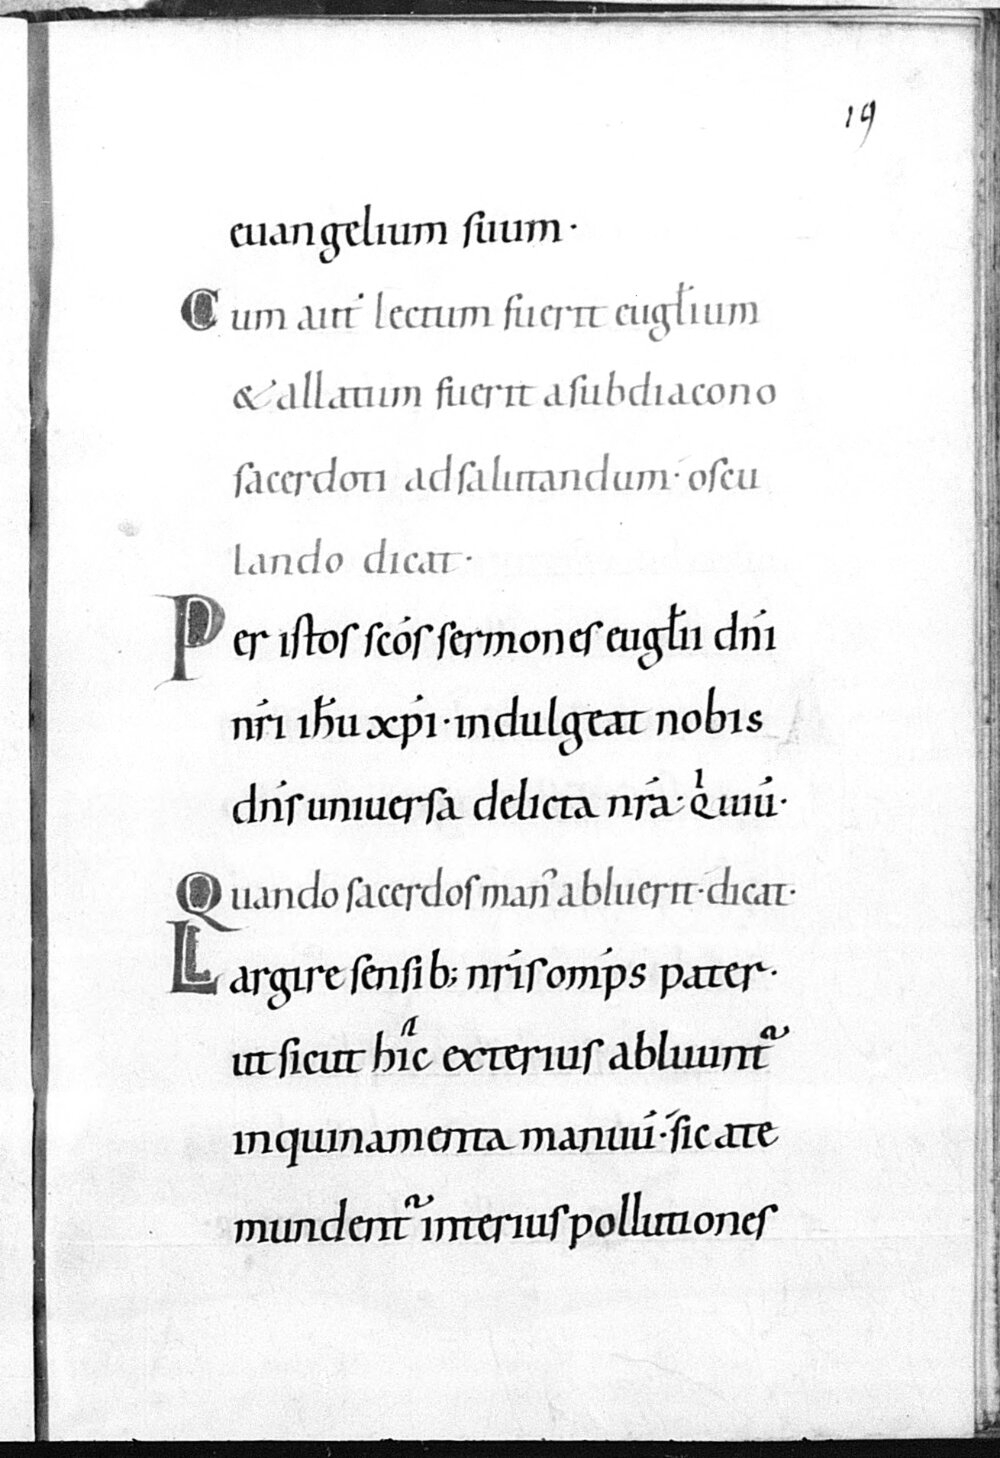 19
euangelium suum·
Cum aut̅ lectum fuerit eugƚium
& allatum fuerit a subdiacono
sacerdoti ad salutandum· oscu
lando dicat·
Per istos sc̅os sermones eugƚii dn̅i
nr̅i ih̅u xp̅i· indulgeat nobis
dn̅s uniuersa delicta nr̅a· Qͥ uiu̅·
Quando sacerdos man᾽ abluerit· dicat·
Largire sensib; nr̅is om̅ps pater·
ut sicut hiͣc exterius abluunt᷑
inquinamenta manuu̅· sic a te
mundent᷑ interius pollutiones